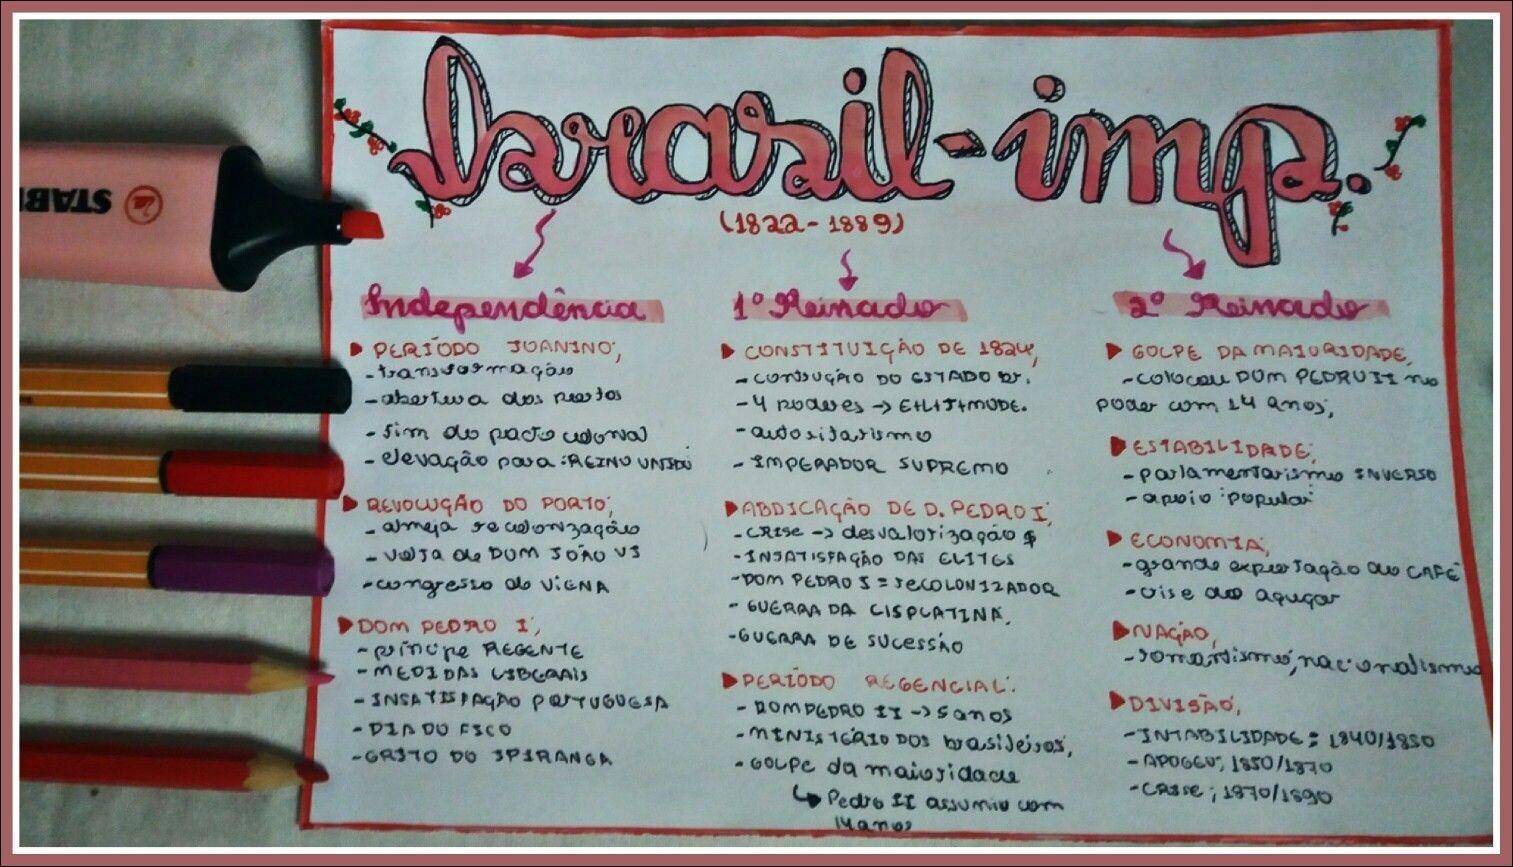 STABI
brasil-imp.
(1822-1889)
Independência
▶ PERÍODO JOANINO;
- transformação
- abertura dos portos
- fim do pacto colonial
- elevação para: REINO UNIDO
▶ REVOLUÇÃO DO PORTO;
- almeja recolonização
- volta de DOM JOÃO VI
- congresso de VIENA
▶ DOM PEDRO I;
- príncipe REGENTE
- MEDIDAS LIBERAIS
- INSATISFAÇÃO PORTUGUESA
- DIA DO FICO
- GRITO DO IPIRANGA
1º Reinado
▶ CONSTITUIÇÃO DE 1824;
- CONSUÇÃO DO ESTADO br.
- 4 poderes → E+L+J+MODE.
- autoritarismo
- IMPERADOR SUPREMO
▶ ABDICAÇÃO DE D. PEDRO I;
- CRISE → desvalorização $
- INSATISFAÇÃO DAS ELITES
- DOM PEDRO I = RECOLONIZADOR
- GUERRA DA CISPLATINA.
- GUERRA DE SUCESSÃO
▶ PERÍODO REGENCIAL:
- DOM PEDRO II → 5 anos
- MINISTÉRIO DOS brasileiros,
- GOLPE da maioridade
↳ Pedro II assumiu com
14 anos
2º Reinado
▶ GOLPE DA MAIORIDADE,
- colocou DOM PEDRO II no
poder com 14 anos;
▶ ESTABILIDADE;
- parlamentarismo INVERSO
- apoio popular
▶ ECONOMIA;
- grande exportação do CAFÉ
- crise do açúcar
▶ NAÇÃO,
- romantismo, nacionalismo
▶ DIVISÃO,
- INTABILIDADE: 1840/1850
- APOGEU; 1850/1870
- CRISE; 1870/1890